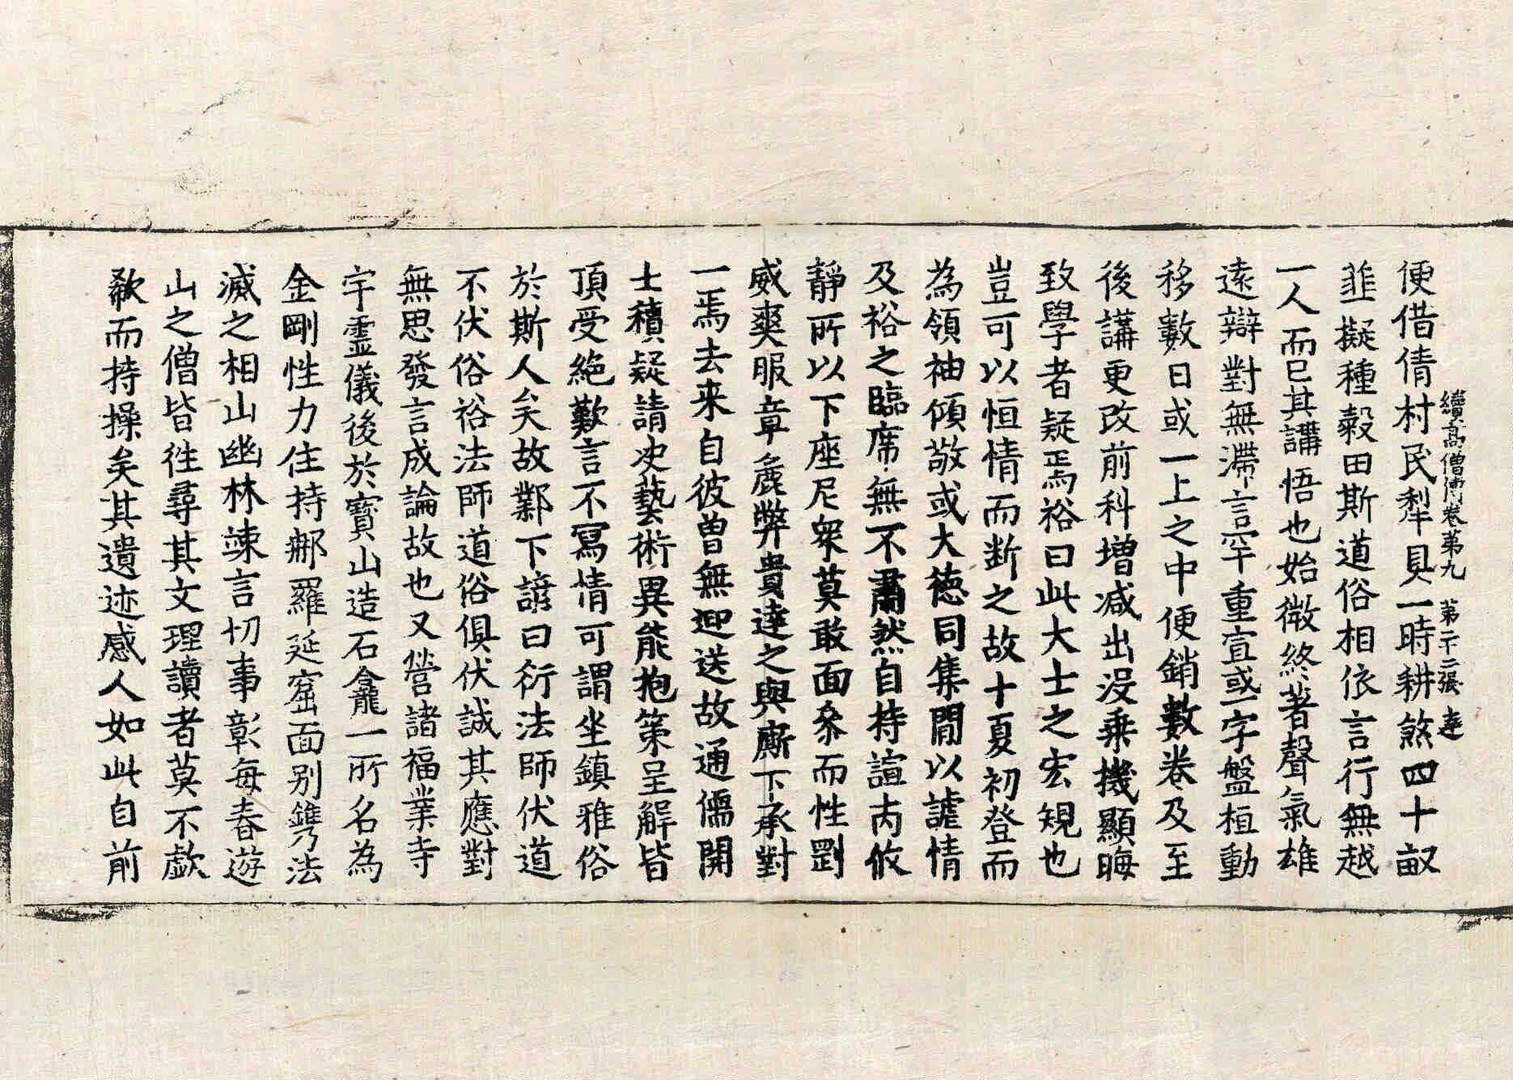 便借倩村民犁具一時耕煞四十畝
續高僧傳卷第九 第二十二張 達
韮擬種穀田斯道俗相依言行無越
一人而已其講悟也始微終著聲氣雄
遠辯對無滯言罕重宣或一字盤桓動
移數日或一上之中便銷數卷及至
後講更改前科增減出沒乗機顯晦
致學者疑焉裕曰此大士之宏規也
豈可以恒情而断之故十夏初登而
為領袖傾敬或大徳同集閒以謔情
及裕之臨席無不肅然自持諠丙攸
靜所以下座尼衆莫敢面叅而性剛
威爽服章麁弊貴達之與厮下承對
一焉去来自彼曾無迎送故通儒開
士積疑請决藝術異能抱策呈解皆
頂受絶歎言不寫情可謂坐鎮雅俗
於斯人矣故鄴下諺曰衍法師伏道
不伏俗裕法師道俗俱伏誠其應對
無思發言成論故也又營諸福業寺
宇靈儀後於寶山造石龕一所名為
金剛性力住持郍羅延窟面別鐫法
滅之相山幽林竦言切事彰每春遊
山之僧皆往尋其文理讀者莫不歔
欷而持操矣其遺迹感人如此自前